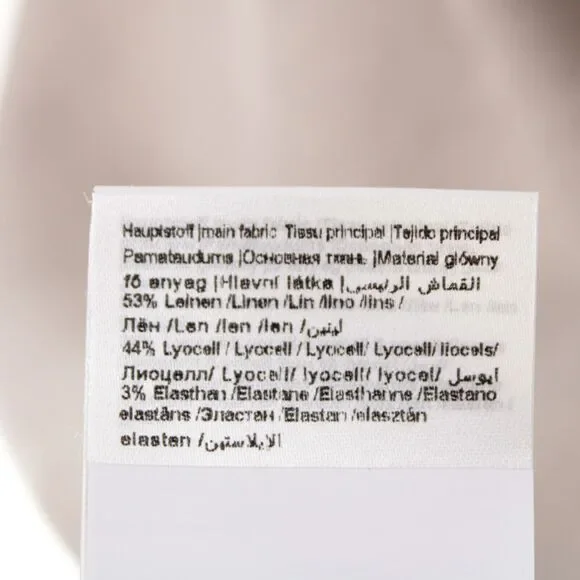 Hauptstoff |main fabric Tissu principal |Tejido principal
Pamataudums |Основная ткань |Materiał główny
fő anyag |Hlavní látka |القماش الرئيسي
53% Leinen /Linen /Lin /lino /lins /
Лён /Len /len /len /لينين
44% Lyocell / Lyocell / Lyocell/ Lyocell/ liocels/
Лиоцелл/ Lyocell/ lyocell/ lyocel/
3% Elasthan /Elastane /Elasthanne /Elastano
elastāns /Эластан /Elastan /elasztán
elasten /الايلاستين